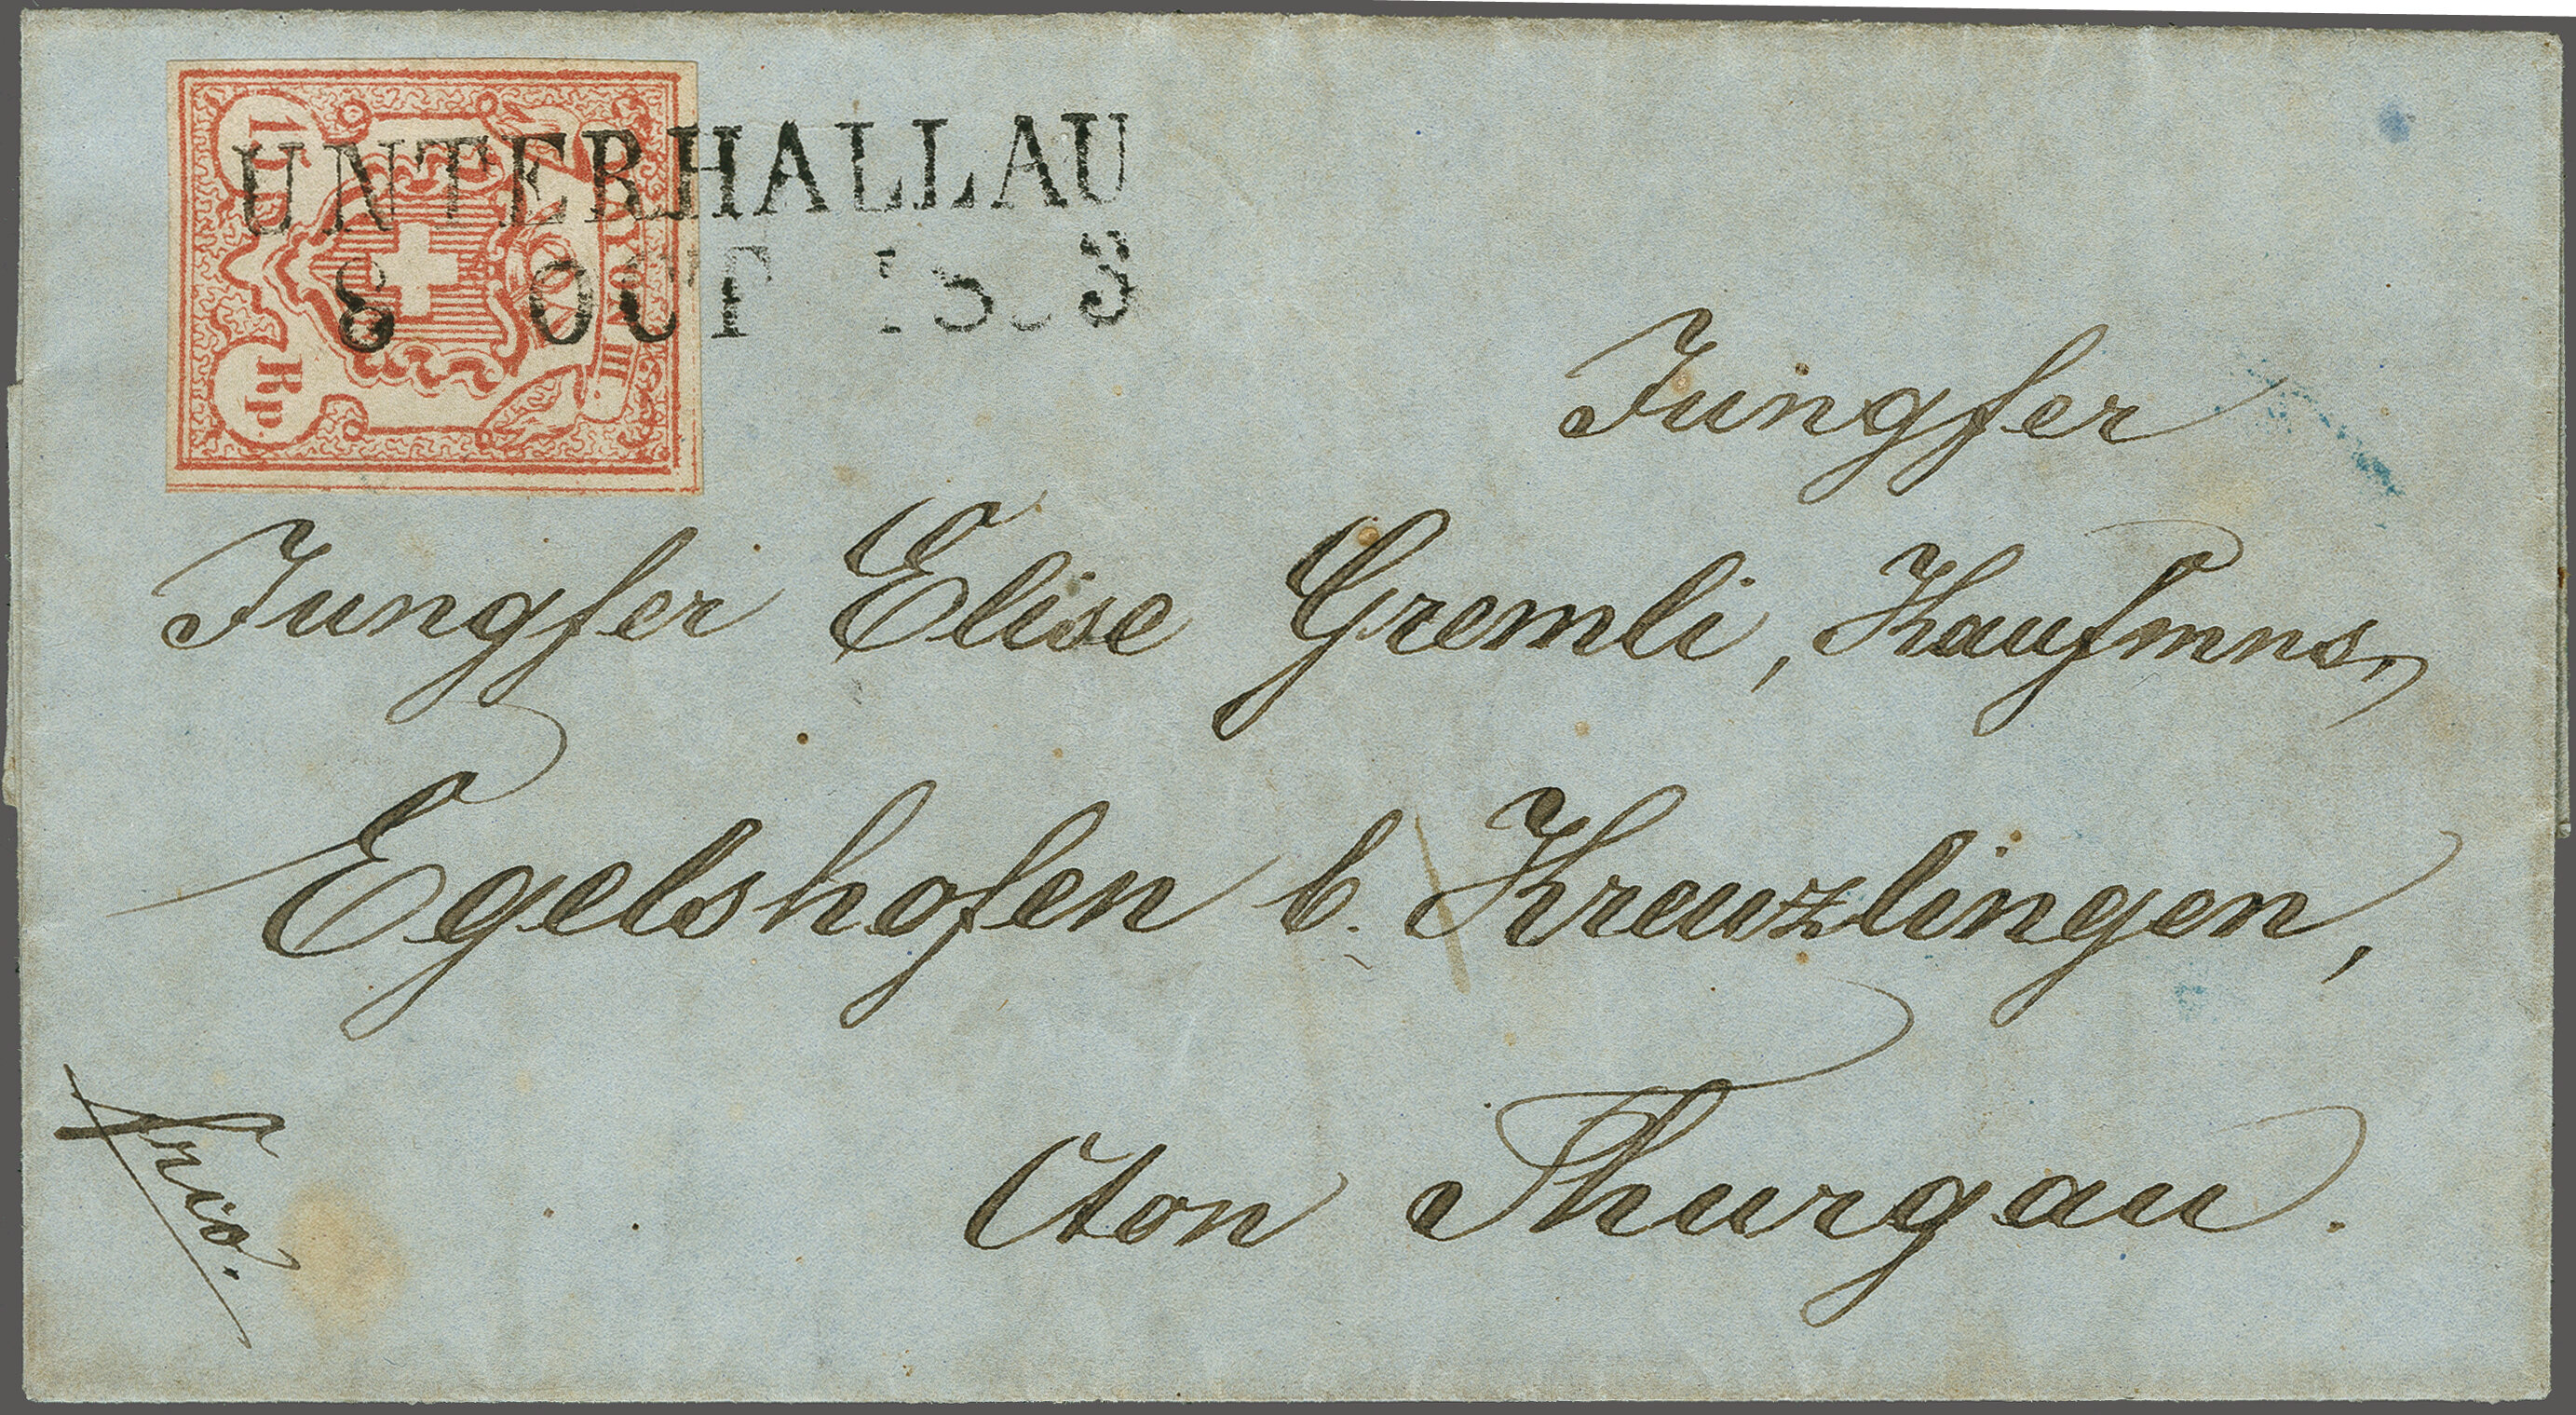 15
Rp.
RAYON III.
UNTERHALLAU
8 OCT 1853
Jungfer
Jungfer Elise Gremli, Kaufmns,
Egelshofen b. Kreuzlingen,
Cton Thurgau.
frco.